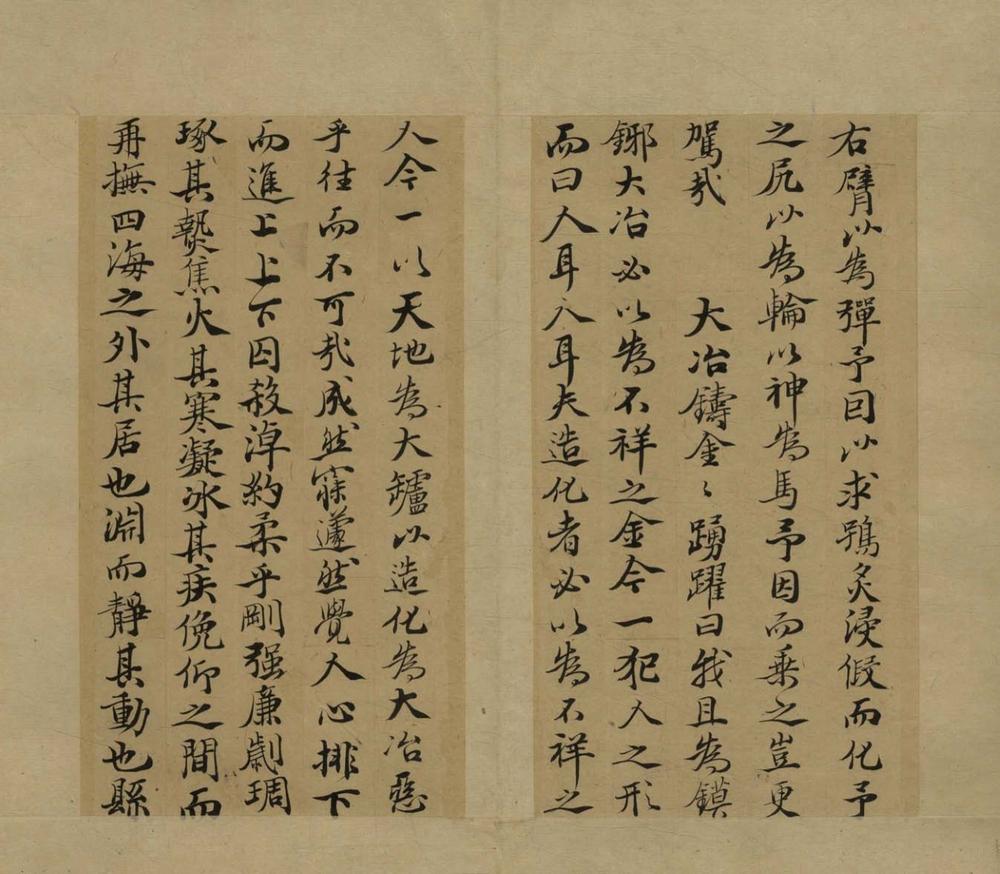 右臂以為彈予因以求鴞炙浸假而化予
之尻以為輪以神為馬予因而乗之豈更
駕㢤　大冶鑄金〻踴躍曰我且為鏌
鎁大冶必以為不祥之金今一犯人之形
而曰人耳人耳夫造化者必以為不祥之
人今一以天地為大鑪以造化為大冶惡
乎往而不可㢤成然寐蘧然覺人心排下
而進上上下囚殺淖約柔乎剛强廉劌琱
琢其熱焦火其寒凝冰其疾俛仰之間而
再撫四海之外其居也淵而靜其動也縣